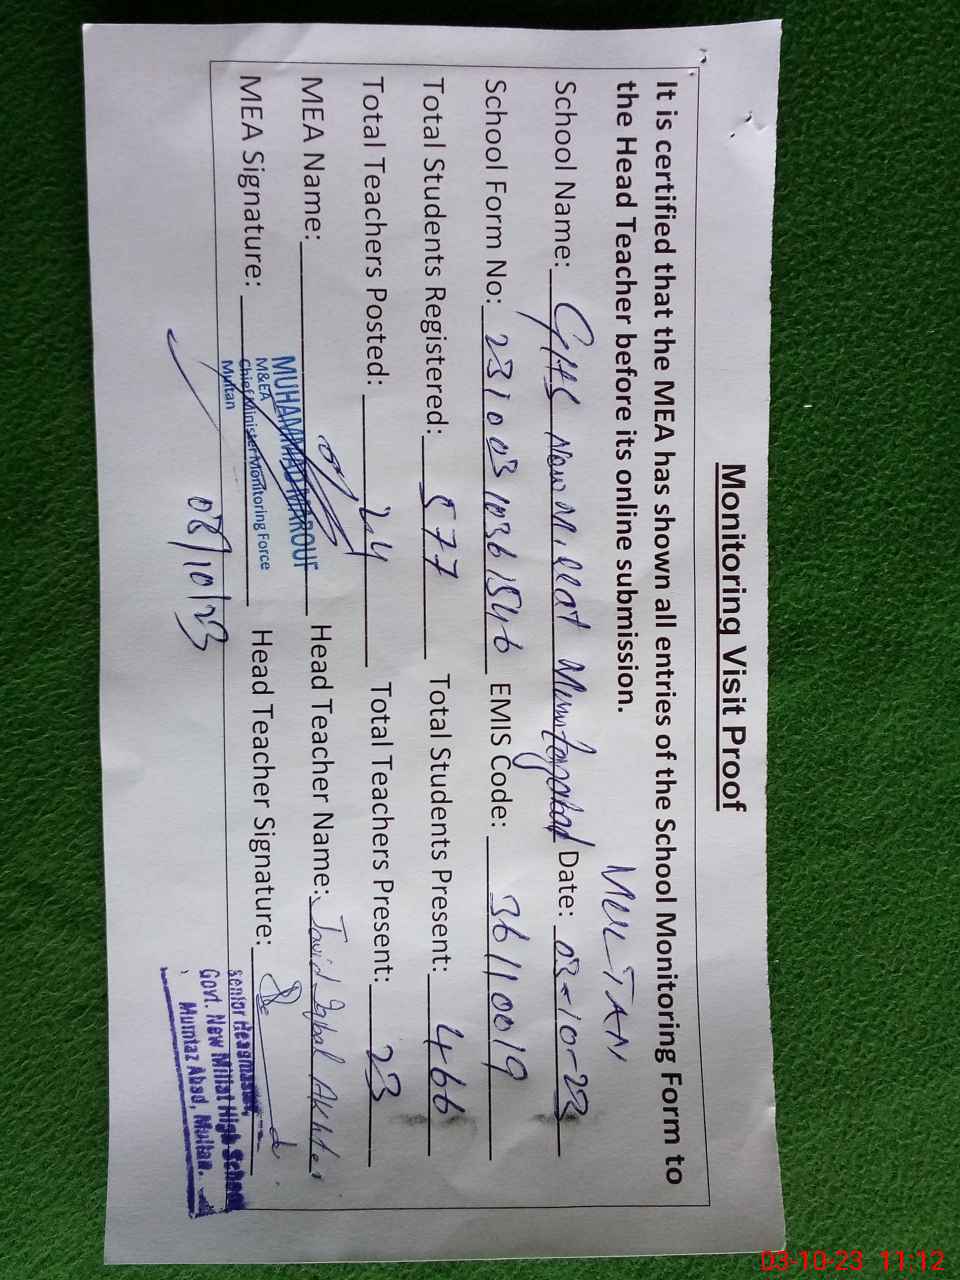 Monitoring Visit Proof
It is certified that the MEA has shown all entries of the School Monitoring Form to
the Head Teacher before its online submission.
MULTAN
School Name: GHS New Millat Mumtazabad Date: 03-10-23
School Form No: 23100310361546 EMIS Code: 36110019
Total Students Registered: 577 Total Students Present: 466
Total Teachers Posted: 24 Total Teachers Present: 23
MEA Name: MUHAMMAD MAROUF Head Teacher Name: Javid Iqbal Akhter
M&EA
Chief Minister Monitoring Force
Multan
MEA Signature: Head Teacher Signature:
03/10/23
Senior Headmaster,
Govt. New Millat High School
Mumtaz Abad, Multan.
03-10-23 11:12